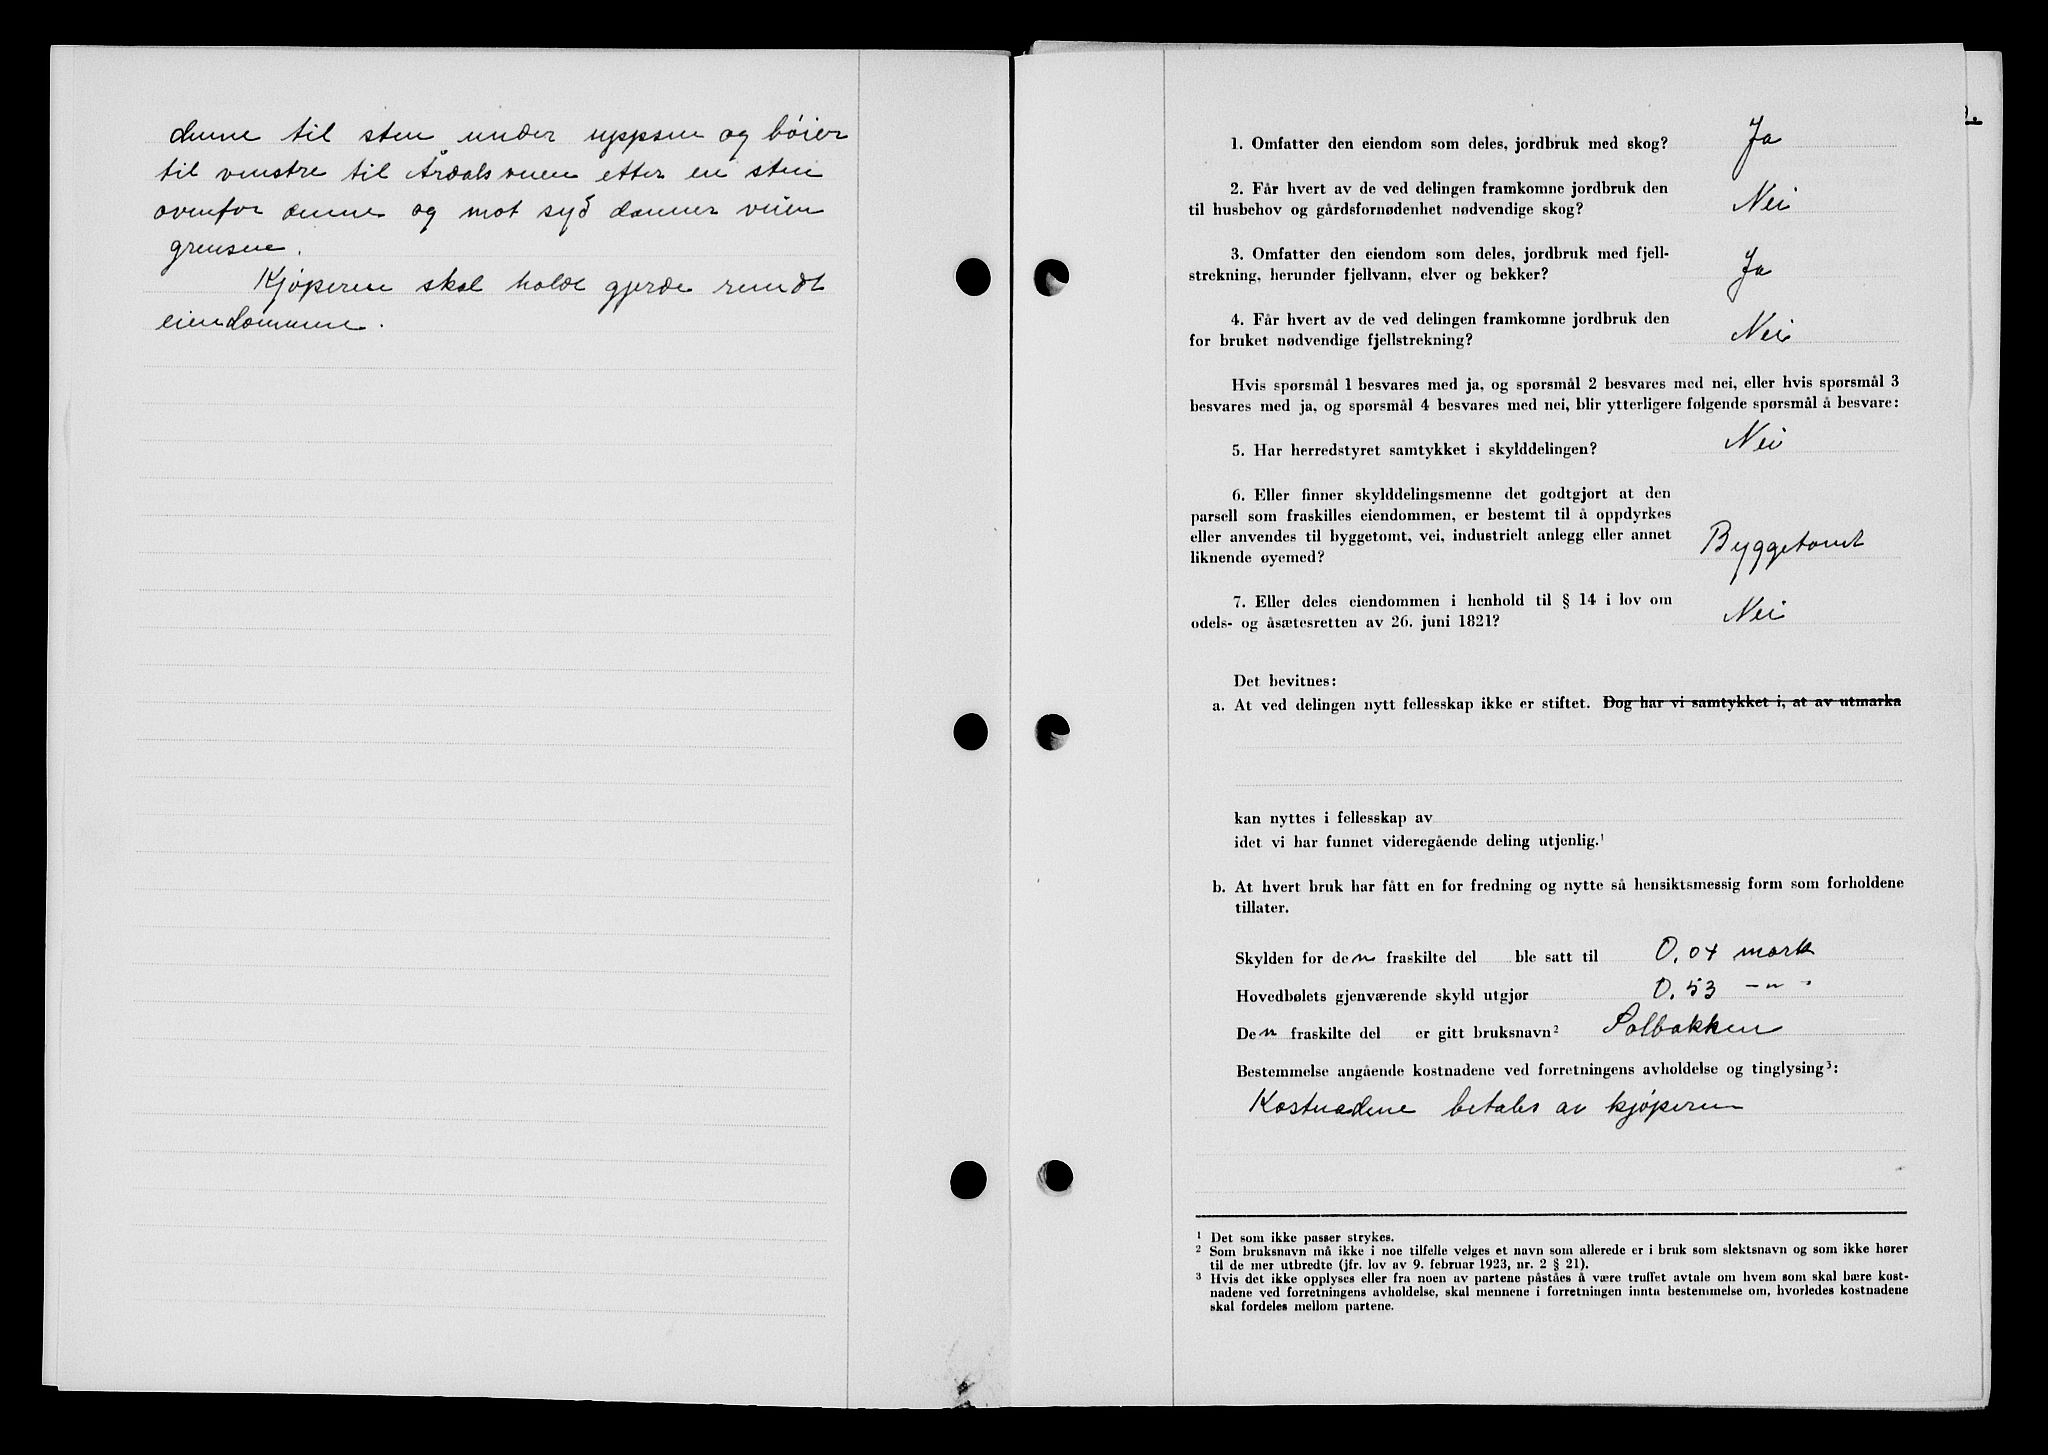 denne til sten under uppsen og böier
til venstre til Årdalsveien etter en sten
ovenfor denne og mot syd danner veien
grensen.
Kjøperen skal holde gjerde rundt
eiendommen.
1. Omfatter den eiendom som deles, jordbruk med skog? Ja
2. Får hvert av de ved delingen framkomne jordbruk den
til husbehov og gårdsfornødenhet nødvendige skog? Nei
3. Omfatter den eiendom som deles, jordbruk med fjell-
strekning, herunder fjellvann, elver og bekker? Ja
4. Får hvert av de ved delingen framkomne jordbruk den
for bruket nødvendige fjellstrekning? Nei
Hvis spørsmål 1 besvares med ja, og spørsmål 2 besvares med nei, eller hvis spørsmål 3
besvares med ja, og spørsmål 4 besvares med nei, blir ytterligere følgende spørsmål å besvare:
5. Har herredstyret samtykket i skylddelingen? Nei
6. Eller finner skylddelingsmenne det godtgjort at den
parsell som fraskilles eiendommen, er bestemt til å oppdyrkes
eller anvendes til byggetomt, vei, industrielt anlegg eller annet
liknende øyemed? Byggetomt
7. Eller deles eiendommen i henhold til § 14 i lov om
odels- og åsætesretten av 26. juni 1821? Nei
Det bevitnes:
a. At ved delingen nytt fellesskap ikke er stiftet. Dog har vi samtykket i, at av utmarka
kan nyttes i fellesskap av
idet vi har funnet videregående deling utjenlig.¹
b. At hvert bruk har fått en for fredning og nytte så hensiktsmessig form som forholdene
tillater.
Skylden for den fraskilte del ble satt til 0,04 mark
Hovedbølets gjenværende skyld utgjør 0,53 -"-
Den fraskilte del er gitt bruksnavn² Solbakken
Bestemmelse angående kostnadene ved forretningens avholdelse og tinglysing³:
Kostnadene betales av kjøperen
¹ Det som ikke passer strykes.
² Som bruksnavn må ikke i noe tilfelle velges et navn som allerede er i bruk som slektsnavn og som ikke hører
til de mer utbredte (jfr. lov av 9. februar 1923, nr. 2 § 21).
³ Hvis det ikke opplyses eller fra noen av partene påståes å være truffet avtale om hvem som skal bære kost-
nadene ved forretningens avholdelse, skal mennene i forretningen innta bestemmelse om, hvorledes kostnadene
skal fordeles mellom partene.